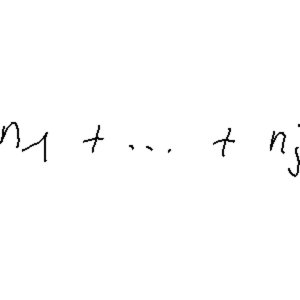 n_1 + ... + n_j